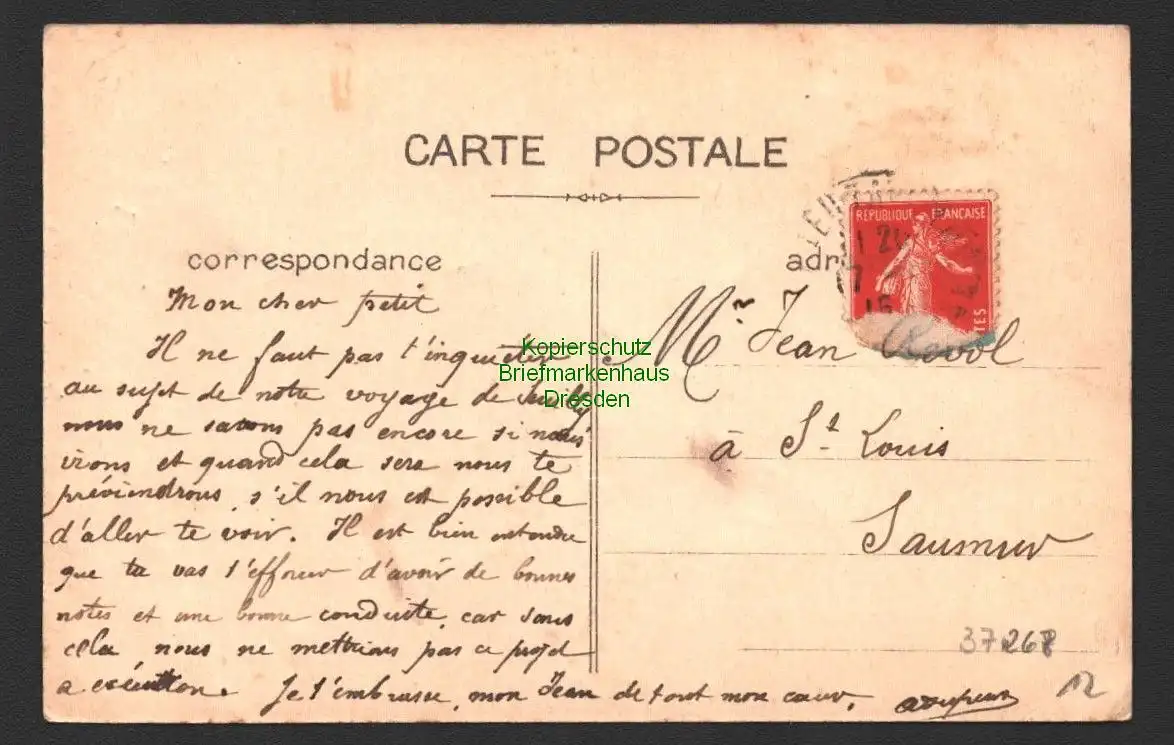 CARTE POSTALE
REPUBLIQUE FRANCAISE
correspondance
adr
Mon cher petit
Il ne faut pas t'inquiéter
au sujet de notre voyage de
nous ne savons pas encore si nous
irons et quand cela sera nous te
préviendrons, s'il nous est possible
d'aller te voir. Il est bien entendu
que tu vas t'efforcer d'avoir de bonnes
notes et une bonne conduite, car sans
cela nous ne mettrions pas ce projet
a exécution. Je t'embrasse, mon Jean de tout mon cœur.
Kopierschutz
Briefmarkenhaus
Dresden
Mr Jean Revol
à St Louis
Saumur
37268
12